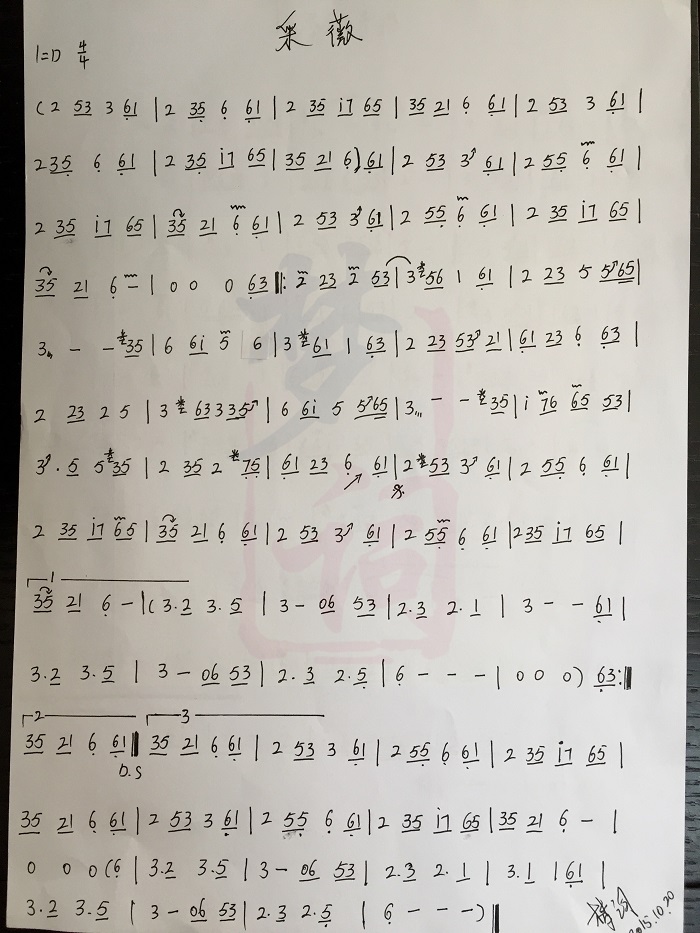 采薇
1=D 4/4
( 2 53 3 61 | 2 35 6 61 | 2 35 i7 65 | 35 21 6 61 | 2 53 3 61 |
2 35 6 61 | 2 35 i7 65 | 35 21 6) 61 | 2 53 3 61 | 2 55 6 61 |
2 35 i7 65 | 35 21 6 61 | 2 53 3 61 | 2 55 6 61 | 2 35 i7 65 |
35 21 6 - | 0 0 0 63 ‖: 2 23 2 53 | 3 56 1 61 | 2 23 5 565 |
3 - - 35 | 6 6i 5 6 | 3 61 1 63 | 2 23 53 21 | 61 23 6 63 |
2 23 2 5 | 3 63 335 | 6 6i 5 565 | 3 - - 35 | i 76 65 53 |
3 . 5 5 35 | 2 35 2 75 | 61 23 6 61 | 2 53 3 61 | 2 55 6 61 |
2 35 i7 65 | 35 21 6 61 | 2 53 3 61 | 2 55 6 61 | 2 35 i7 65 |
1
35 21 6 - | ( 3.2 3.5 | 3 - 06 53 | 2.3 2.1 | 3 - - 61 |
3.2 3.5 | 3 - 06 53 | 2.3 2.5 | 6 - - - | 0 0 0 ) 63 :‖
2 3
35 21 6 61 ‖ 35 21 6 61 | 2 53 3 61 | 2 55 6 61 | 2 35 i7 65 |
D.S
35 21 6 61 | 2 53 3 61 | 2 55 6 61 | 2 35 i7 65 | 35 21 6 - |
0 0 0 (6 | 3.2 3.5 | 3 - 06 53 | 2.3 2.1 | 3.1 | 61 |
3.2 3.5 | 3 - 06 53 | 2.3 2.5 | 6 - - - ) ‖
2015.10.20